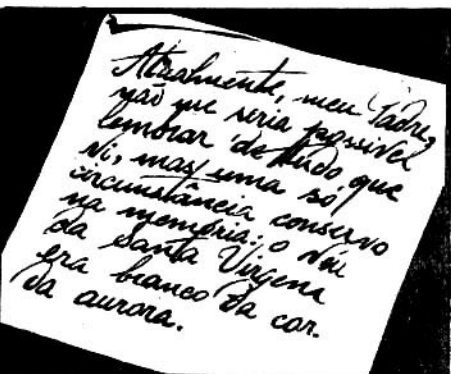 Atualmente, meu Padre,
não me seria possível
lembrar de tudo que
vi, mas uma só
circunstância conservo
na memória: o véu
da Santa Virgem
era branco da cor
da aurora.